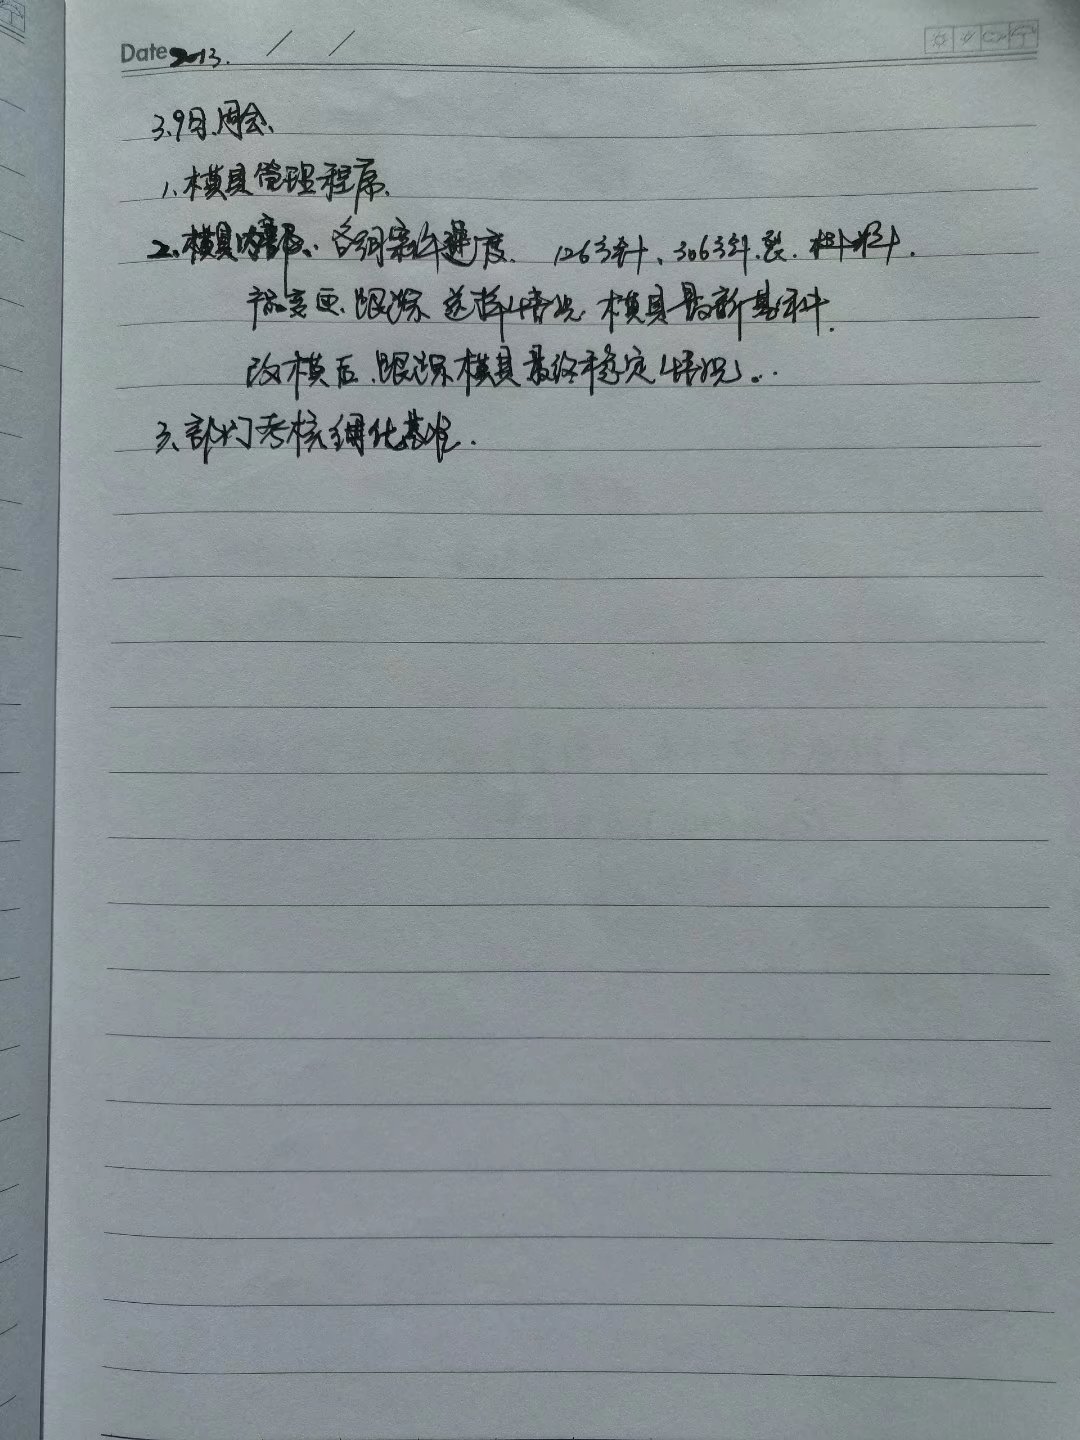 Date 2013.
3.9日.周会、
1、模具管理程序.
2、模具内部、各细案件进度. 1263、3063
产品变更.跟踪送样情况.模具最新基料.
改模后.跟踪模具最终稳定情况。..
3、部门考核细化基准.